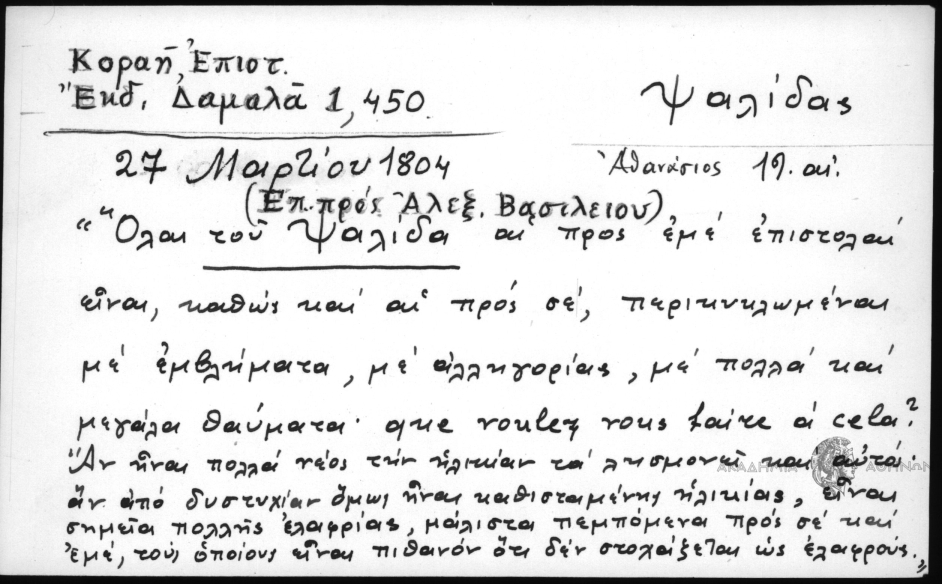 Κοραῆ, Ἐπιστ.
Ἔκδ. Δαμαλᾶ 1,450.
Ψαλίδας
27 Μαρτίου 1804
Ἀθανάσιος 19. αἰ.
(Ἐπ. πρός Ἀλεξ. Βασιλειου)
“Ὅλαι τοῦ Ψαλίδα αἱ προς ἐμέ ἐπιστολαί
εἶναι, καθώς καί αἱ πρός σέ, περικυκλωμέναι
μέ ἐμβλήματα, μέ ἀλληγορίας, μέ πολλά καί
μεγάλα θαύματα· que voulez vous faire á cela?
Ἄν ἦναι πολλά νέος τήν ἡλικίαν τά λησμονεῖ καί αὐτά·
ἄν ἀπό δυστυχίαν ὅμως ἦναι καθισταμένης ἡλικίας, εἶναι
σημεῖα πολλῆς ἐλαφρίας, μάλιστα πεμπόμενα πρός σέ καί
ἐμέ, τούς ὁποίους εἶναι πιθανόν ὅτι δέν στοχάζεται ὡς ἐλαφρούς.”
ΑΚΑΔΗΜΙΑ ΑΘΗΝΩΝ